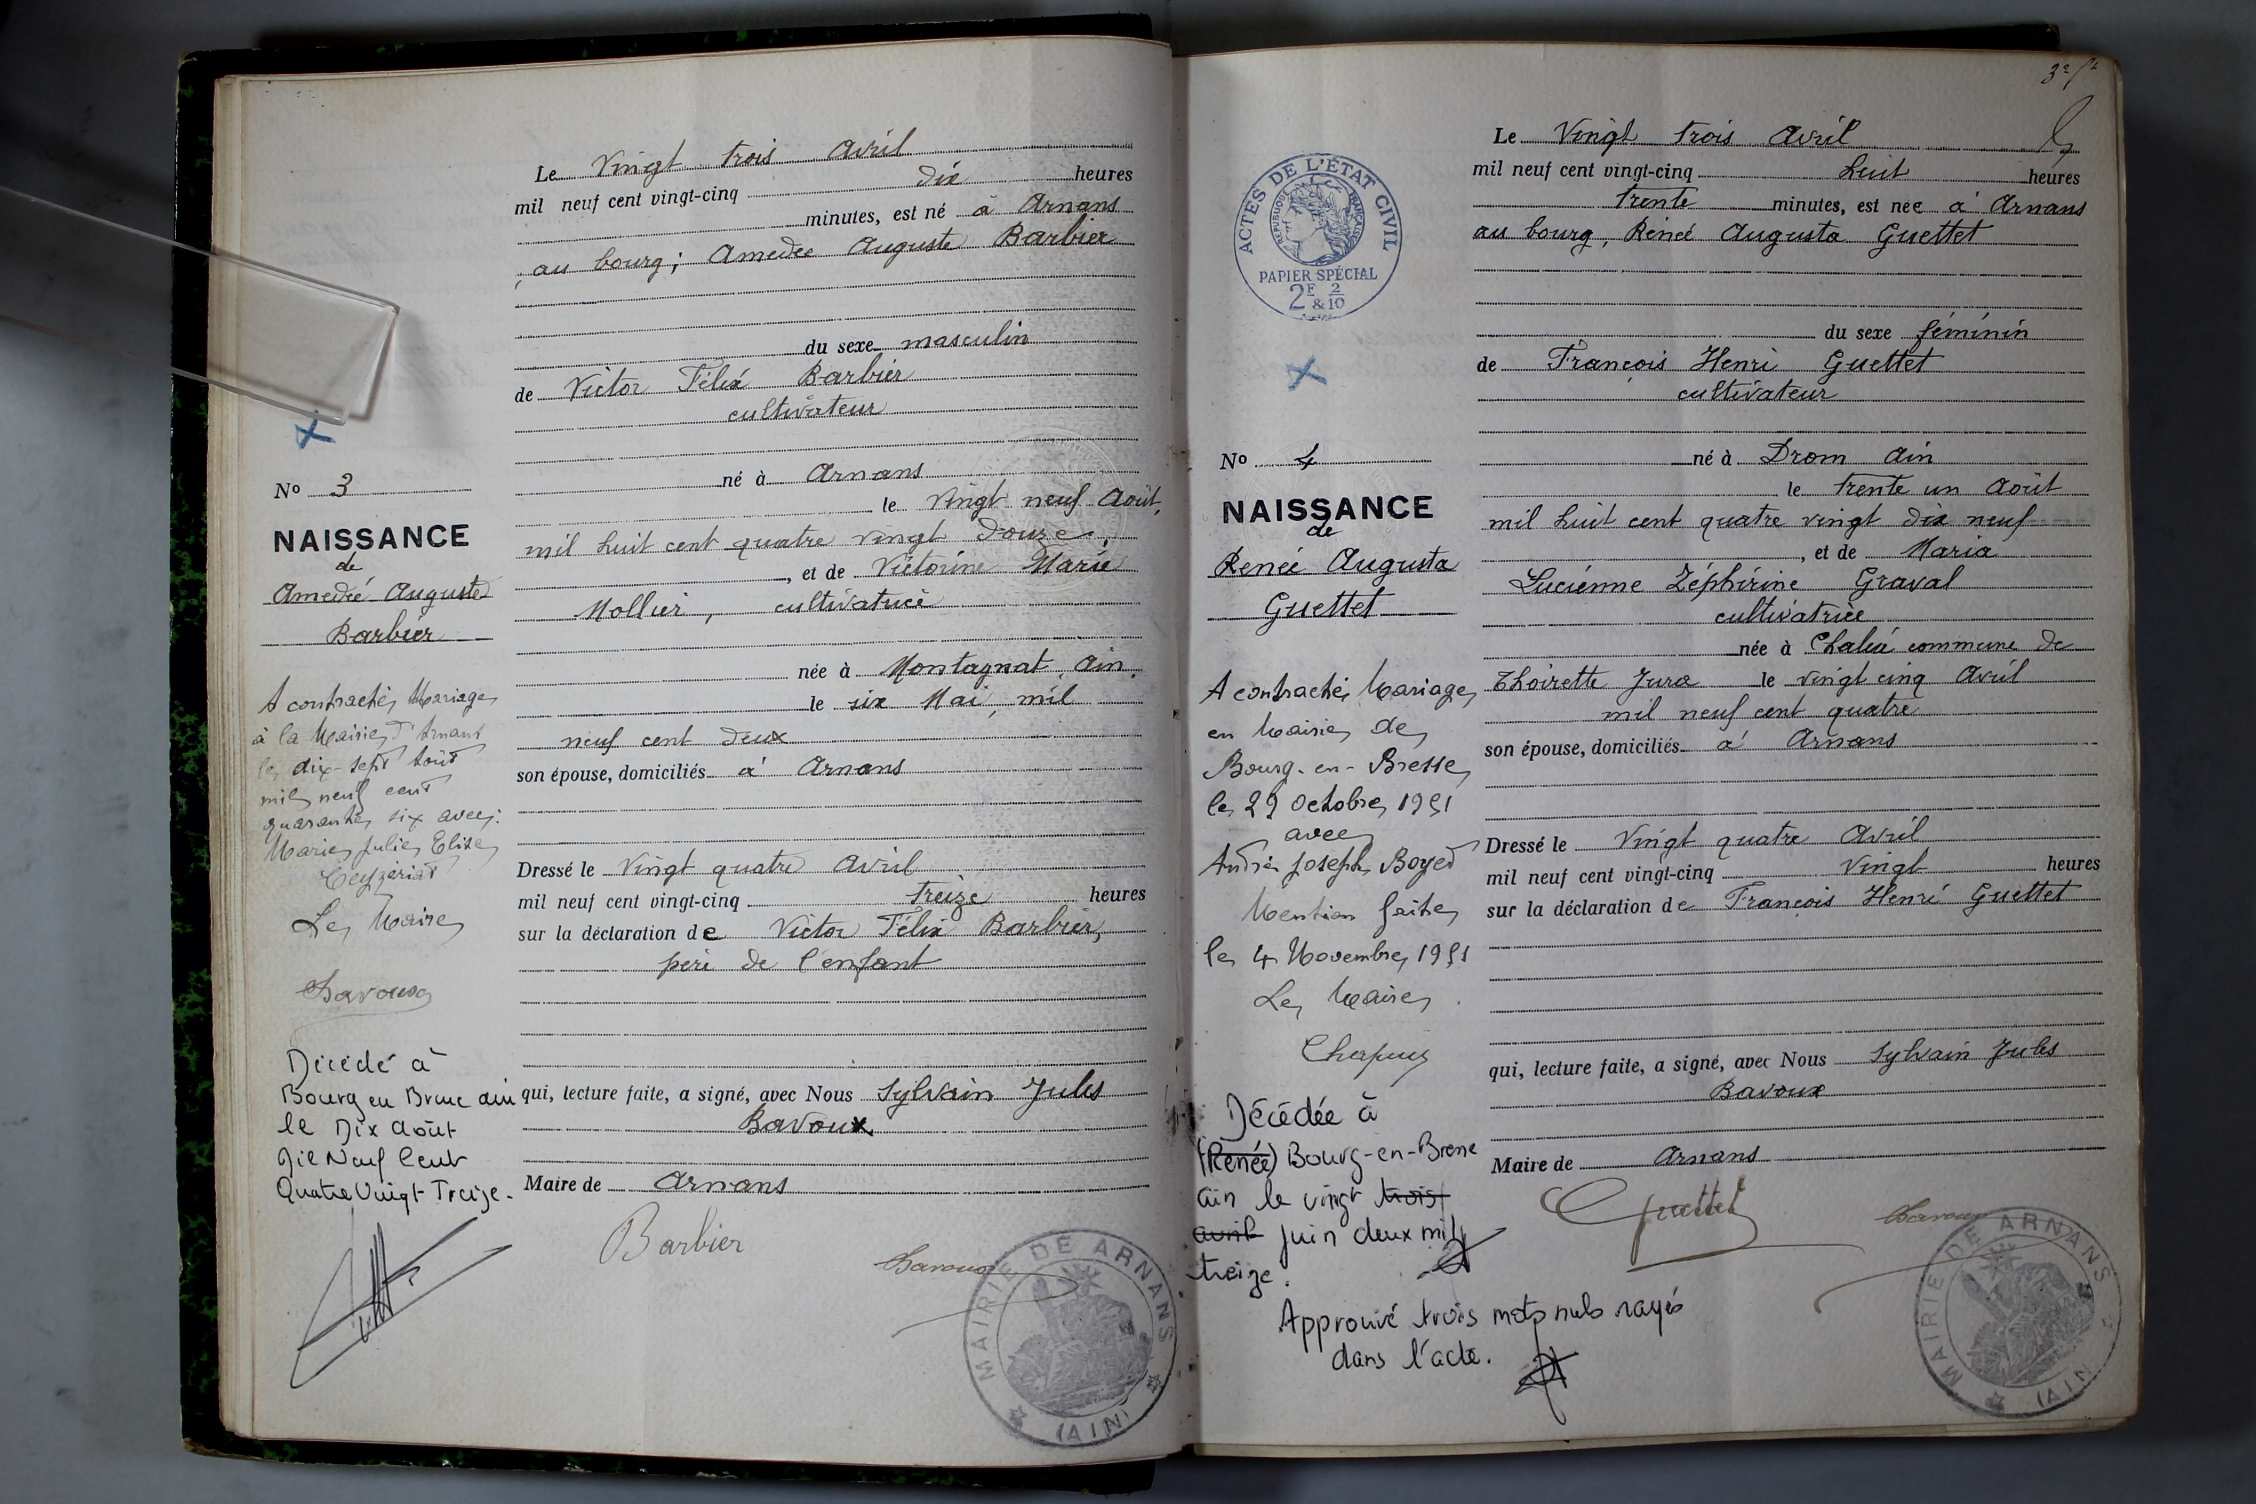 Le Vingt trois Avril
mil neuf cent vingt-cinq dix heures
minutes, est né à Arnans
, au bourg; Amédée Auguste Barbier
du sexe masculin
de Victor Félix Barbier
cultivateur
né à Arnans
le Vingt neuf Août,
mil huit cent quatre vingt douze,
, et de Victorine Marie
Mollier, cultivatrice
née à Montagnat, Ain,
le six Mai, mil
neuf cent deux
son épouse, domiciliés à Arnans
Dressé le Vingt quatre Avril
mil neuf cent vingt-cinq treize heures
sur la déclaration de Victor Félix Barbier,
père de l'enfant
qui, lecture faite, a signé, avec Nous Sylvain Jules
Bavoux
Maire de Arnans
Barbier
Bavoux
MAIRIE DE ARNANS
(AIN)
No 3
NAISSANCE
de
Amedée Auguste
Barbier
A contracté Mariage
à la Mairie d'Arnans
le dix-sept Août
mil neuf cent
quarante six avec:
Marie Julie Elise
Ceyzériat
Le Maire
Bavoux
Décédé à
Bourg en Bresse Ain
le Dix Août
Mil Neuf Cent
Quatre Vingt Treize.
Le Vingt trois Avril
mil neuf cent vingt-cinq huit heures
trente minutes, est née à Arnans
au bourg, Renée Augusta Guettet
du sexe féminin
de François Henri Guettet
cultivateur
né à Drom Ain
le trente un Août
mil huit cent quatre vingt dix neuf
, et de Maria
Lucienne Zéphirine Graval
cultivatrice
née à Chaléa commune de
Thoirette Jura le vingt cinq Avril
mil neuf cent quatre
son épouse, domiciliés à Arnans
Dressé le Vingt quatre Avril
mil neuf cent vingt-cinq Vingt heures
sur la déclaration de François Henri Guettet
qui, lecture faite, a signé, avec Nous Sylvain Jules
Bavoux
Maire de Arnans
Guettet
Bavoux
MAIRIE DE ARNANS
(AIN)
ACTES DE L'ÉTAT CIVIL
RÉPUBLIQUE FRANÇAISE
PAPIER SPÉCIAL
2F & 2/10
No 4
NAISSANCE
de
Renée Augusta
Guettet
A contracté Mariage
en Mairie de
Bourg-en-Bresse
le 29 Octobre 1951
avec
André Joseph Boyet
Mention faite
le 4 Novembre 1951
Le Maire
Décédée à
(Renée) Bourg-en-Bresse
Ain le vingt trois
avril juin deux mil
treize.
Approuvé trois mots nuls rayés
dans l'acte.